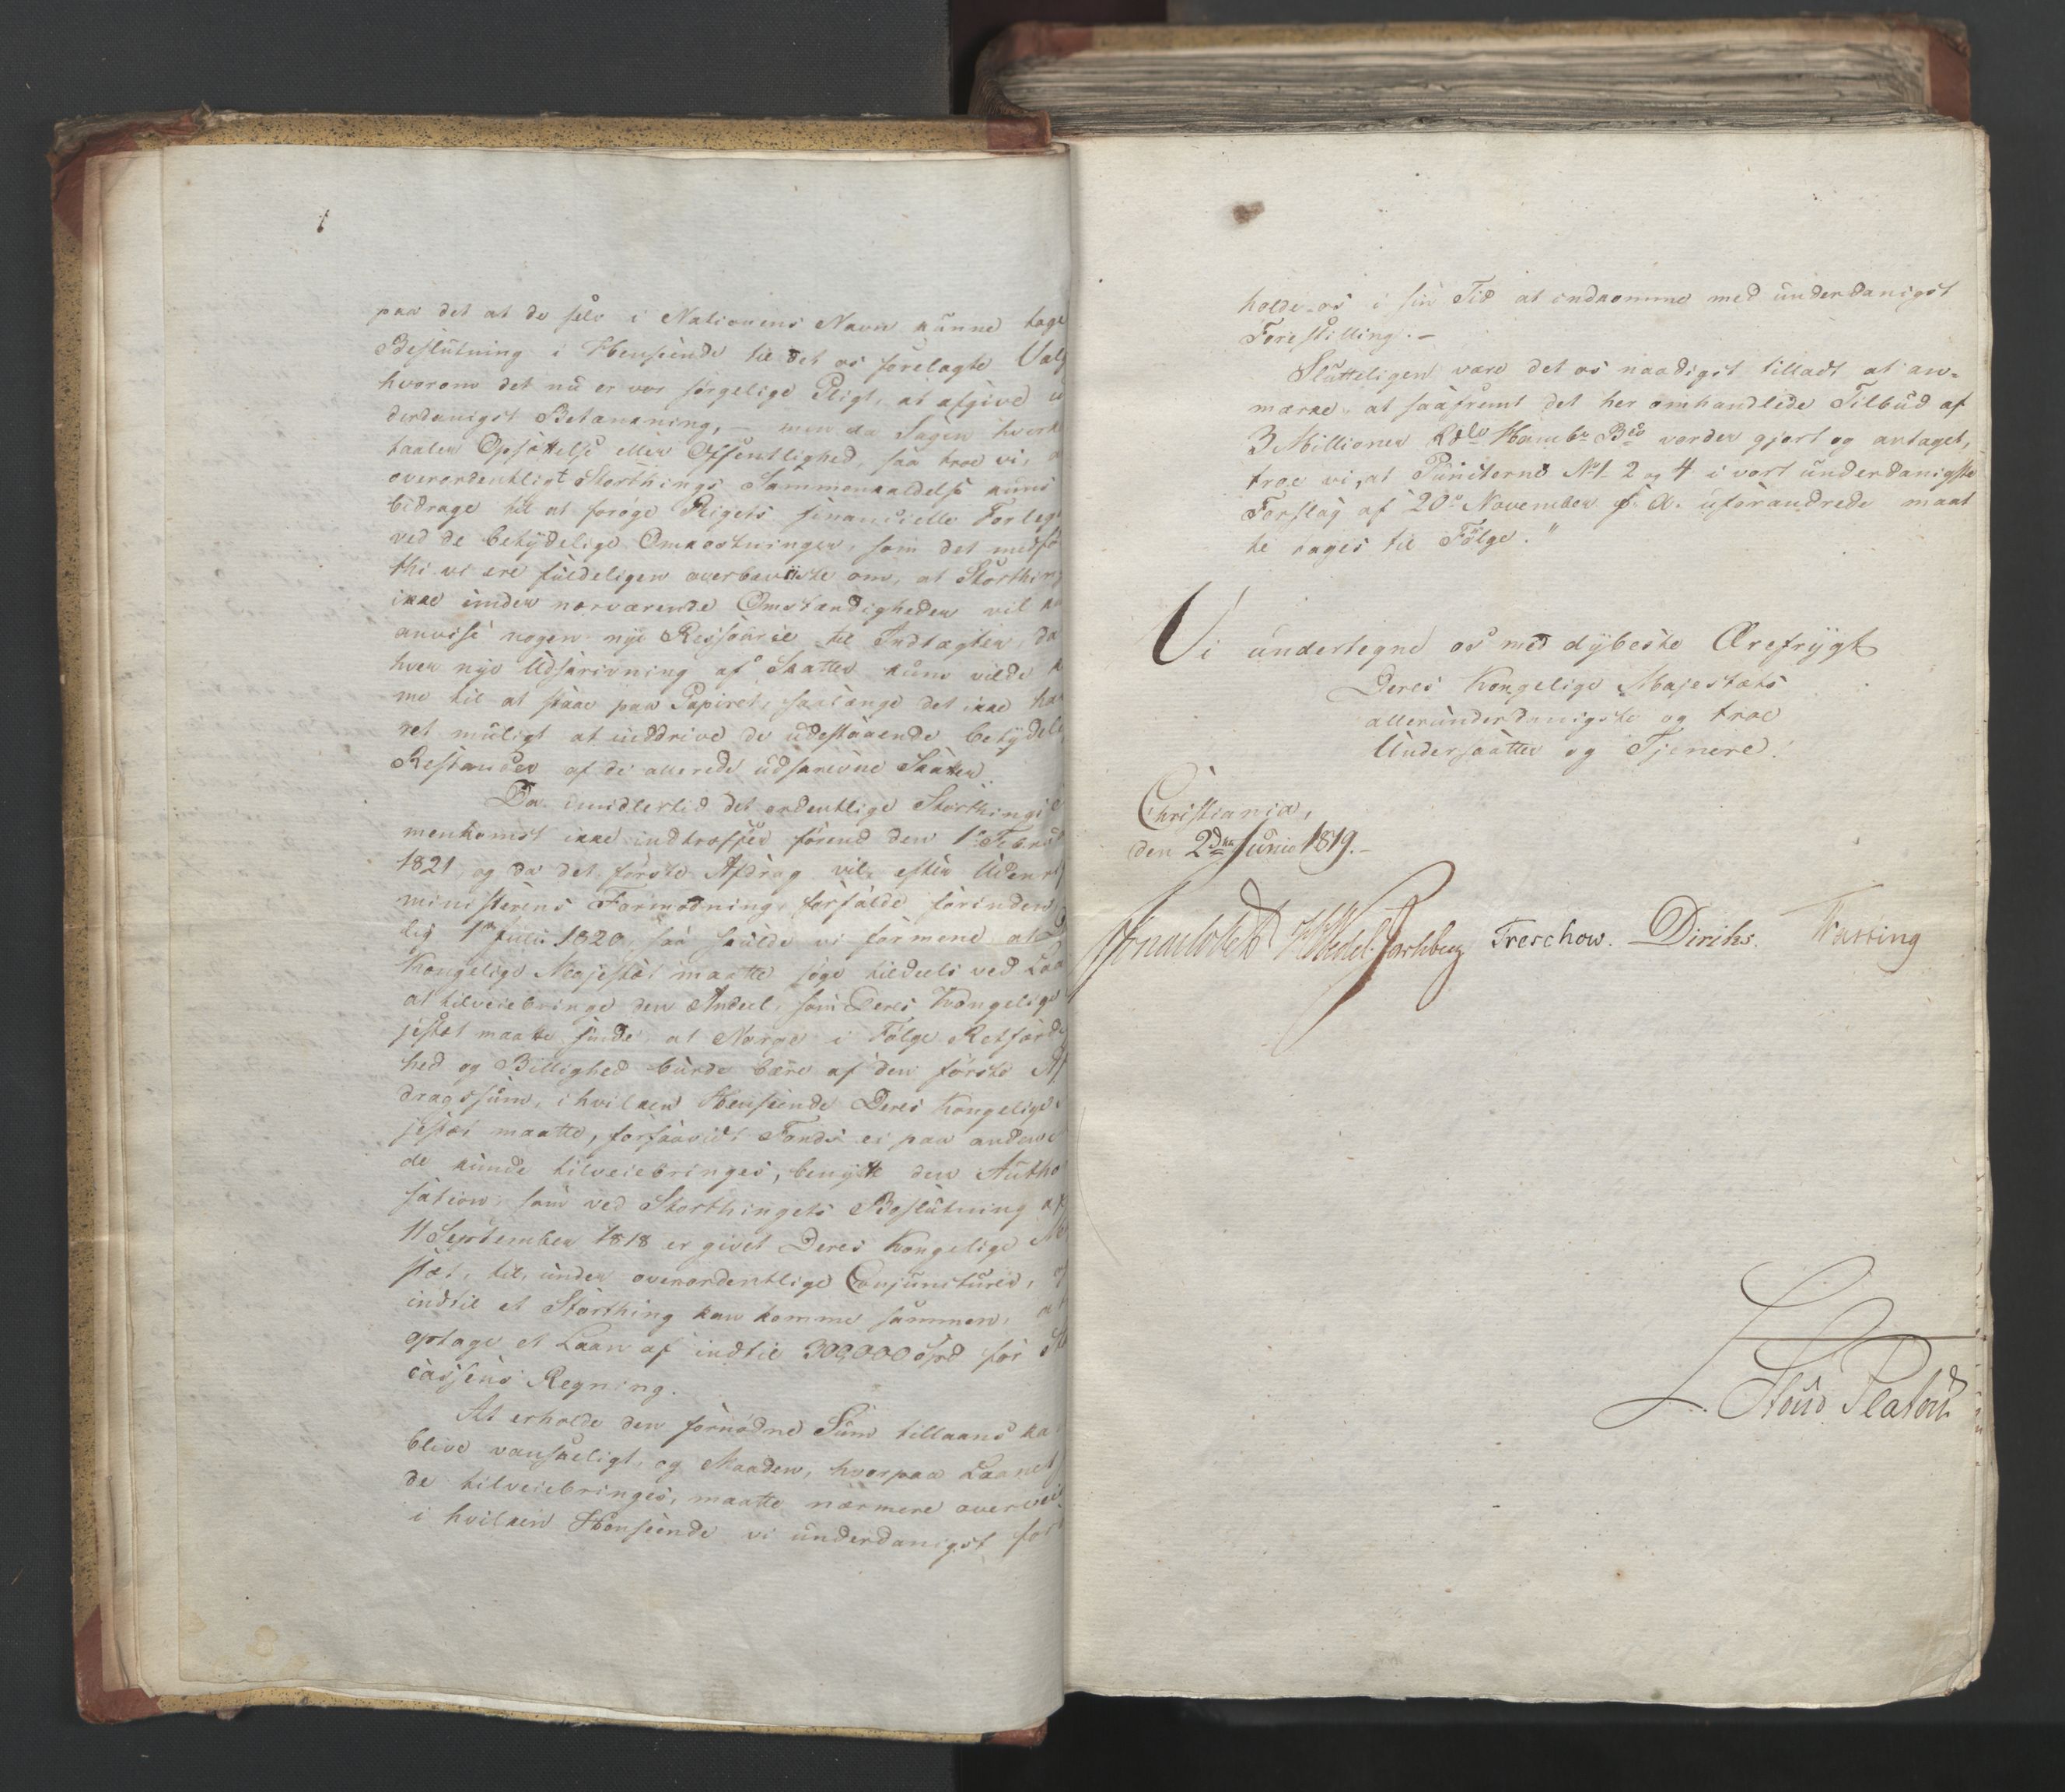 paa det at de selv i Nationens Navn kunne tage
Beslutning i Henseende til det os forelagte Valg
hvorom det nu er vor sørgelige Pligt, at afgive u
derdanigst Betænkning, — men da Sagen hverk
taaler Opsættelse eller Offentlighed, saa troe vi, a
overordentligt Storthings Sammenkaldelse kuns
bidrage til at forøge Rigets financielle Forleg
ved de betydelige Omkostninger, som det medfø
thi vi ere fuldeligen overbeviiste om, at Storthing
ikke under nærværende Omstændigheder vil
anvise nogen nye Ressource til Indtægter, da
hver nye Udskrivning af Skatter kuns vilde k
me til at staae paa Papiret, saalænge det ikke ha
ret muligt at inddrive de udestaaende betydeli
Restancer af de allerede udskrevne Skatter.
Da imidlertid det ordentlige Storthings
menkomst ikke indtræffer førend den 1e Febru
1821, og da det første Afdrag vil, efter Udenri
ministerens Formodning, forfaldeførinden
lig 1ste Julii 1820, saa skulde vi formene at D
Kongelige Majestæt maatte søge tildeels ved Laa
at tilveiebringe den Andeel, som Deres Kongelige
jestæt maatte finde, at Norge i Følge Retfærdi
hed og Billighed burde bære af den første Af
dragssum, i hvilken Henseende Deres Kongelige
jestæt maatte, forsaavidt Fonds ei paa anden
de kunde tilveiebringes, benytte den Autho
sation, som ved Storthingets Beslutning af
11 September 1818 er givet Deres Kongelige Ma
stæt, til, under overordentlige Conjuncturer, og
indtil et Storthing kan komme sammen, at
optage et Laan af indtil 300,000 Spd for St
cassens Regning.
At erholde den fornødne Sum tillaans ka
blive vanskeligt, og Maaden, hvorpaa Laanet
de tilveiebringes, maatte nærmere overvei
i hvilken Henseende vi underdanigst for
holde os i sin Tid at indkomme med underdanigst
Forestilling. —
Slutteligen være det os naadigst tilladt at an-
mærke, at saafremt det her omhandlede Tilbud af
3 Millioner Rdlr Hambr Bco vorder gjort og antaget,
troe vi, at Puncterne No 1 2 og 4 i vort underdanigste
Forslag af 20de November f. A. uforandrede maat
te tages til Følge."
Vi undertegne os med dybeste Ærefrygt
Deres Kongelige Majestæts
allerunderdanigste og troe
Undersaatter og Tjenere.
Christiania,
den 2den Junii 1819. —
Treschow. Diriks. Fasting